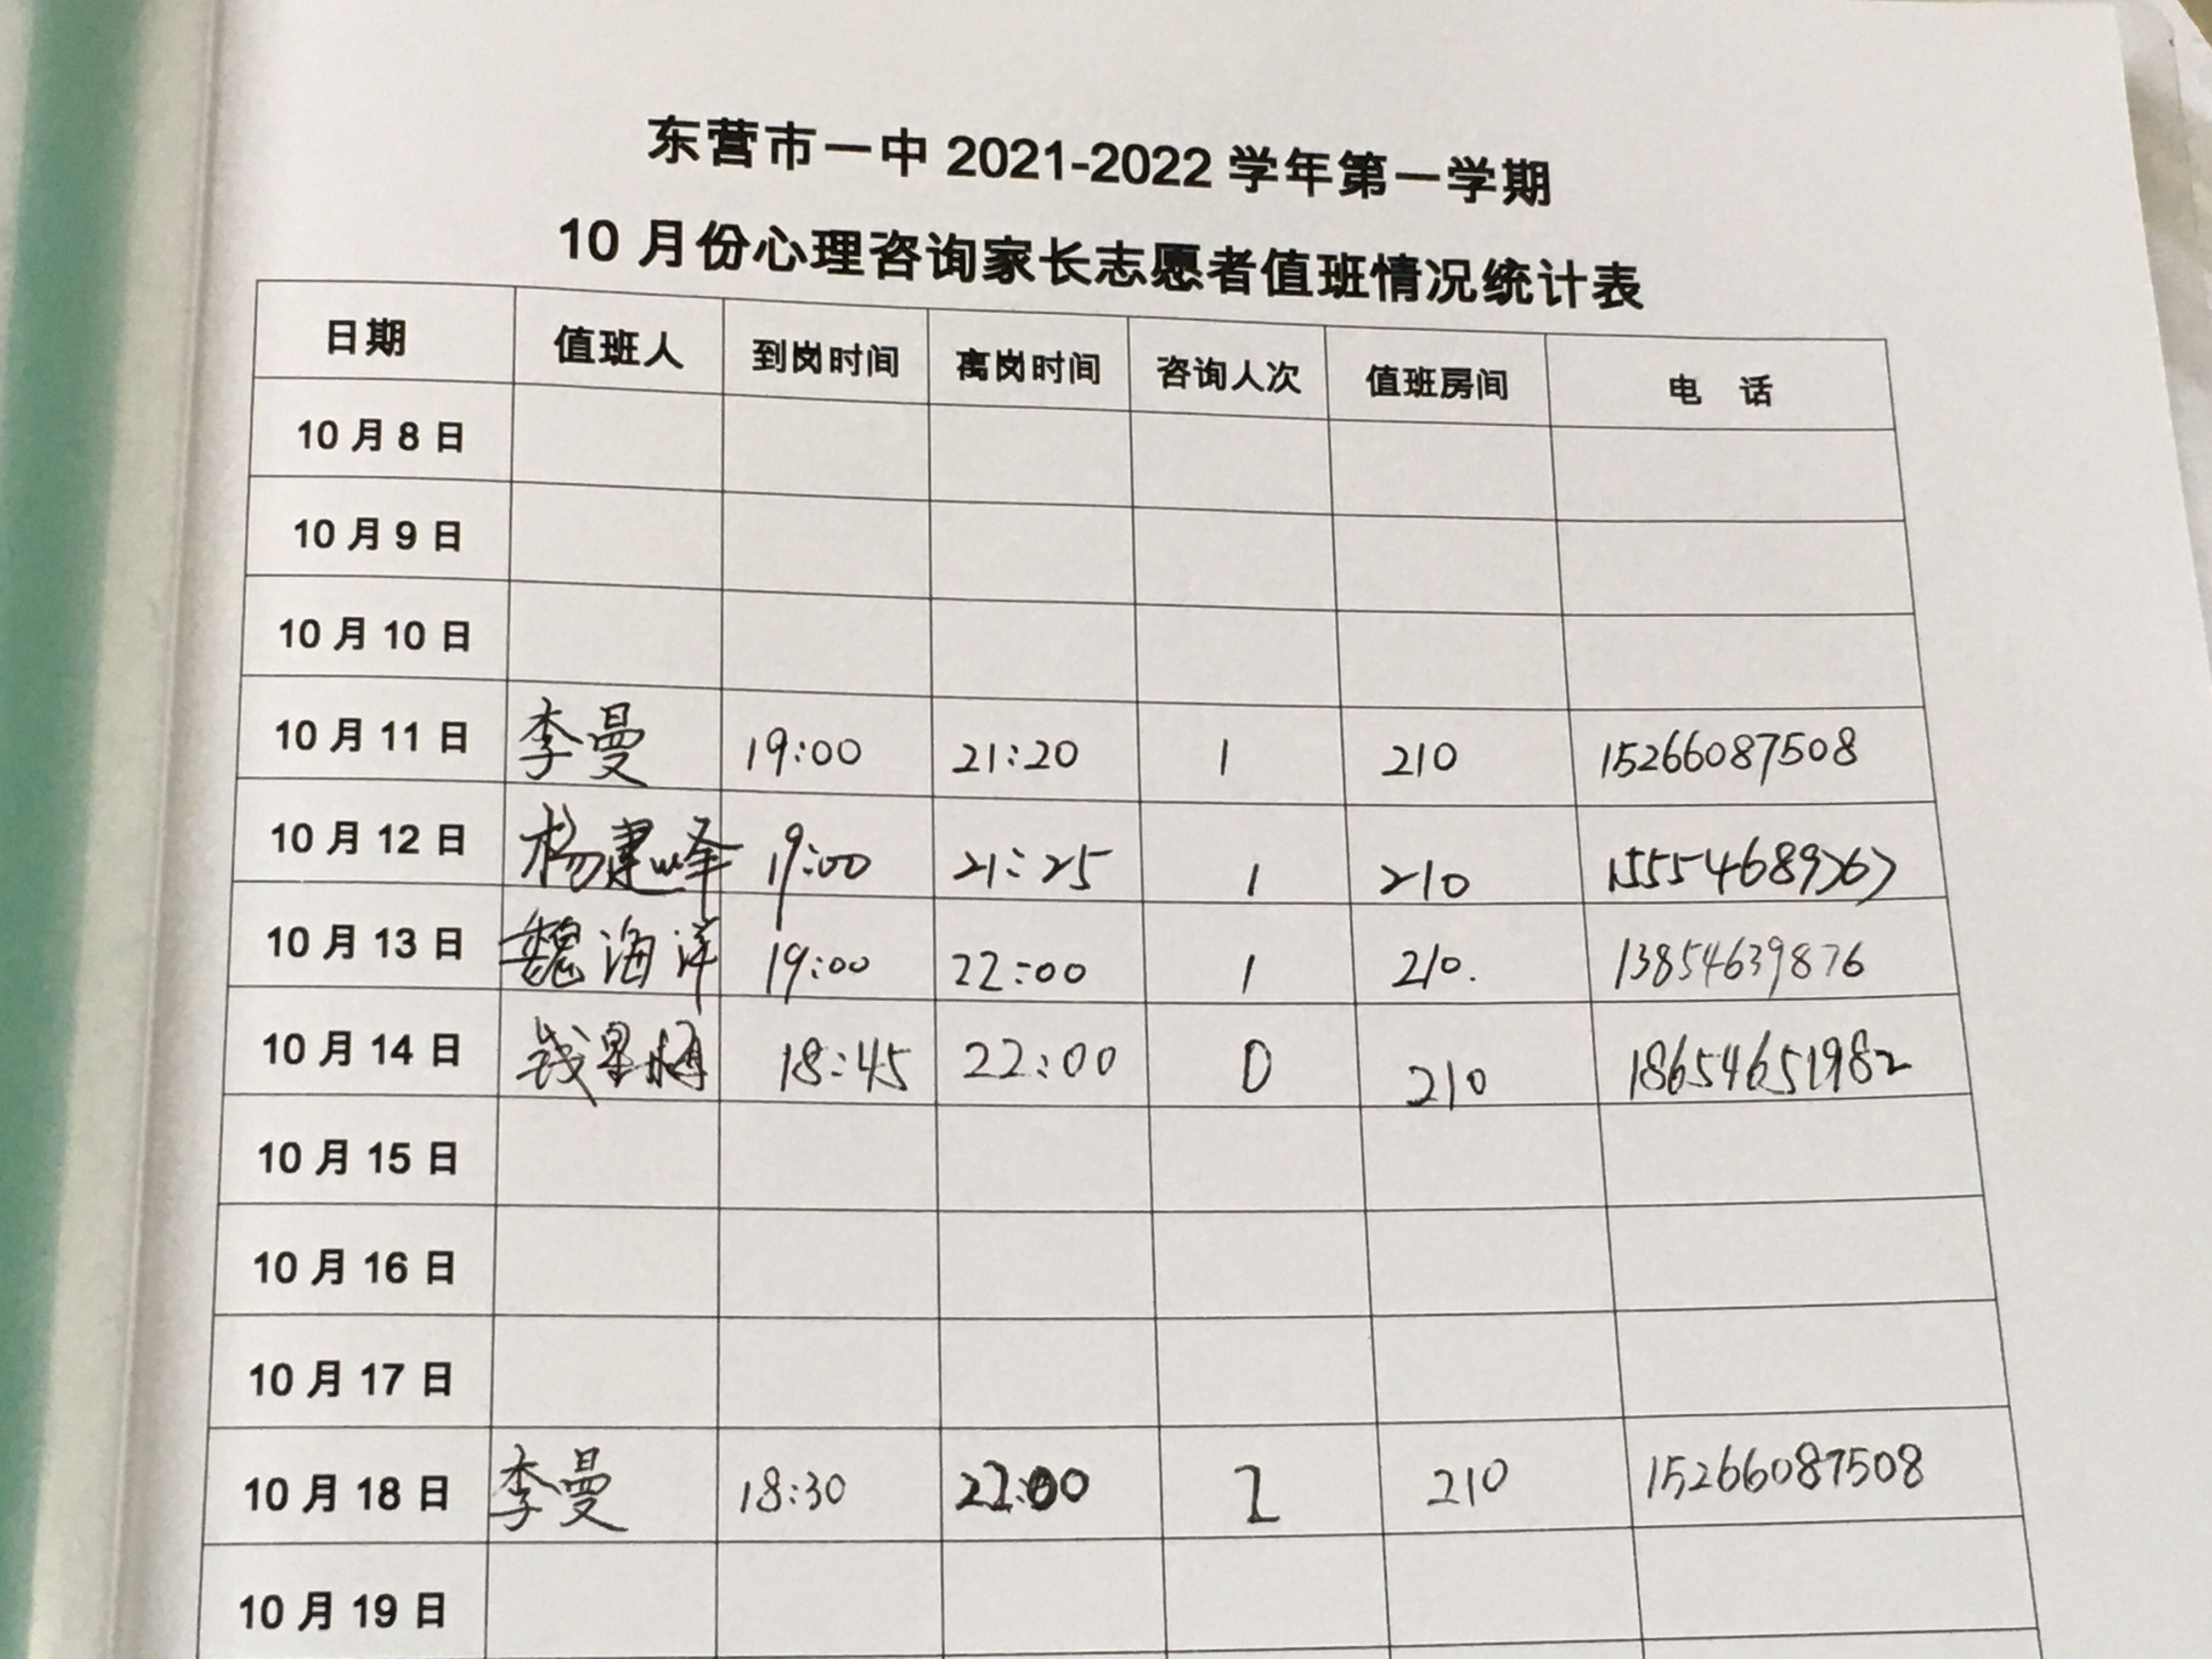 东营市一中 2021-2022 学年第一学期
10 月份心理咨询家长志愿者值班情况统计表
日期 值班人 到岗时间 离岗时间 咨询人次 值班房间 电 话
10 月 8 日
10 月 9 日
10 月 10 日
10 月 11 日 李曼 19:00 21:20 1 210 15266087508
10 月 12 日 杨建峰 19:00 21:25 1 210 15554689767
10 月 13 日 魏海洋 19:00 22:00 1 210. 13854639876
10 月 14 日 钱 18:45 22:00 0 210 18654651982
10 月 15 日
10 月 16 日
10 月 17 日
10 月 18 日 李曼 18:30 22:00 2 210 15266087508
10 月 19 日